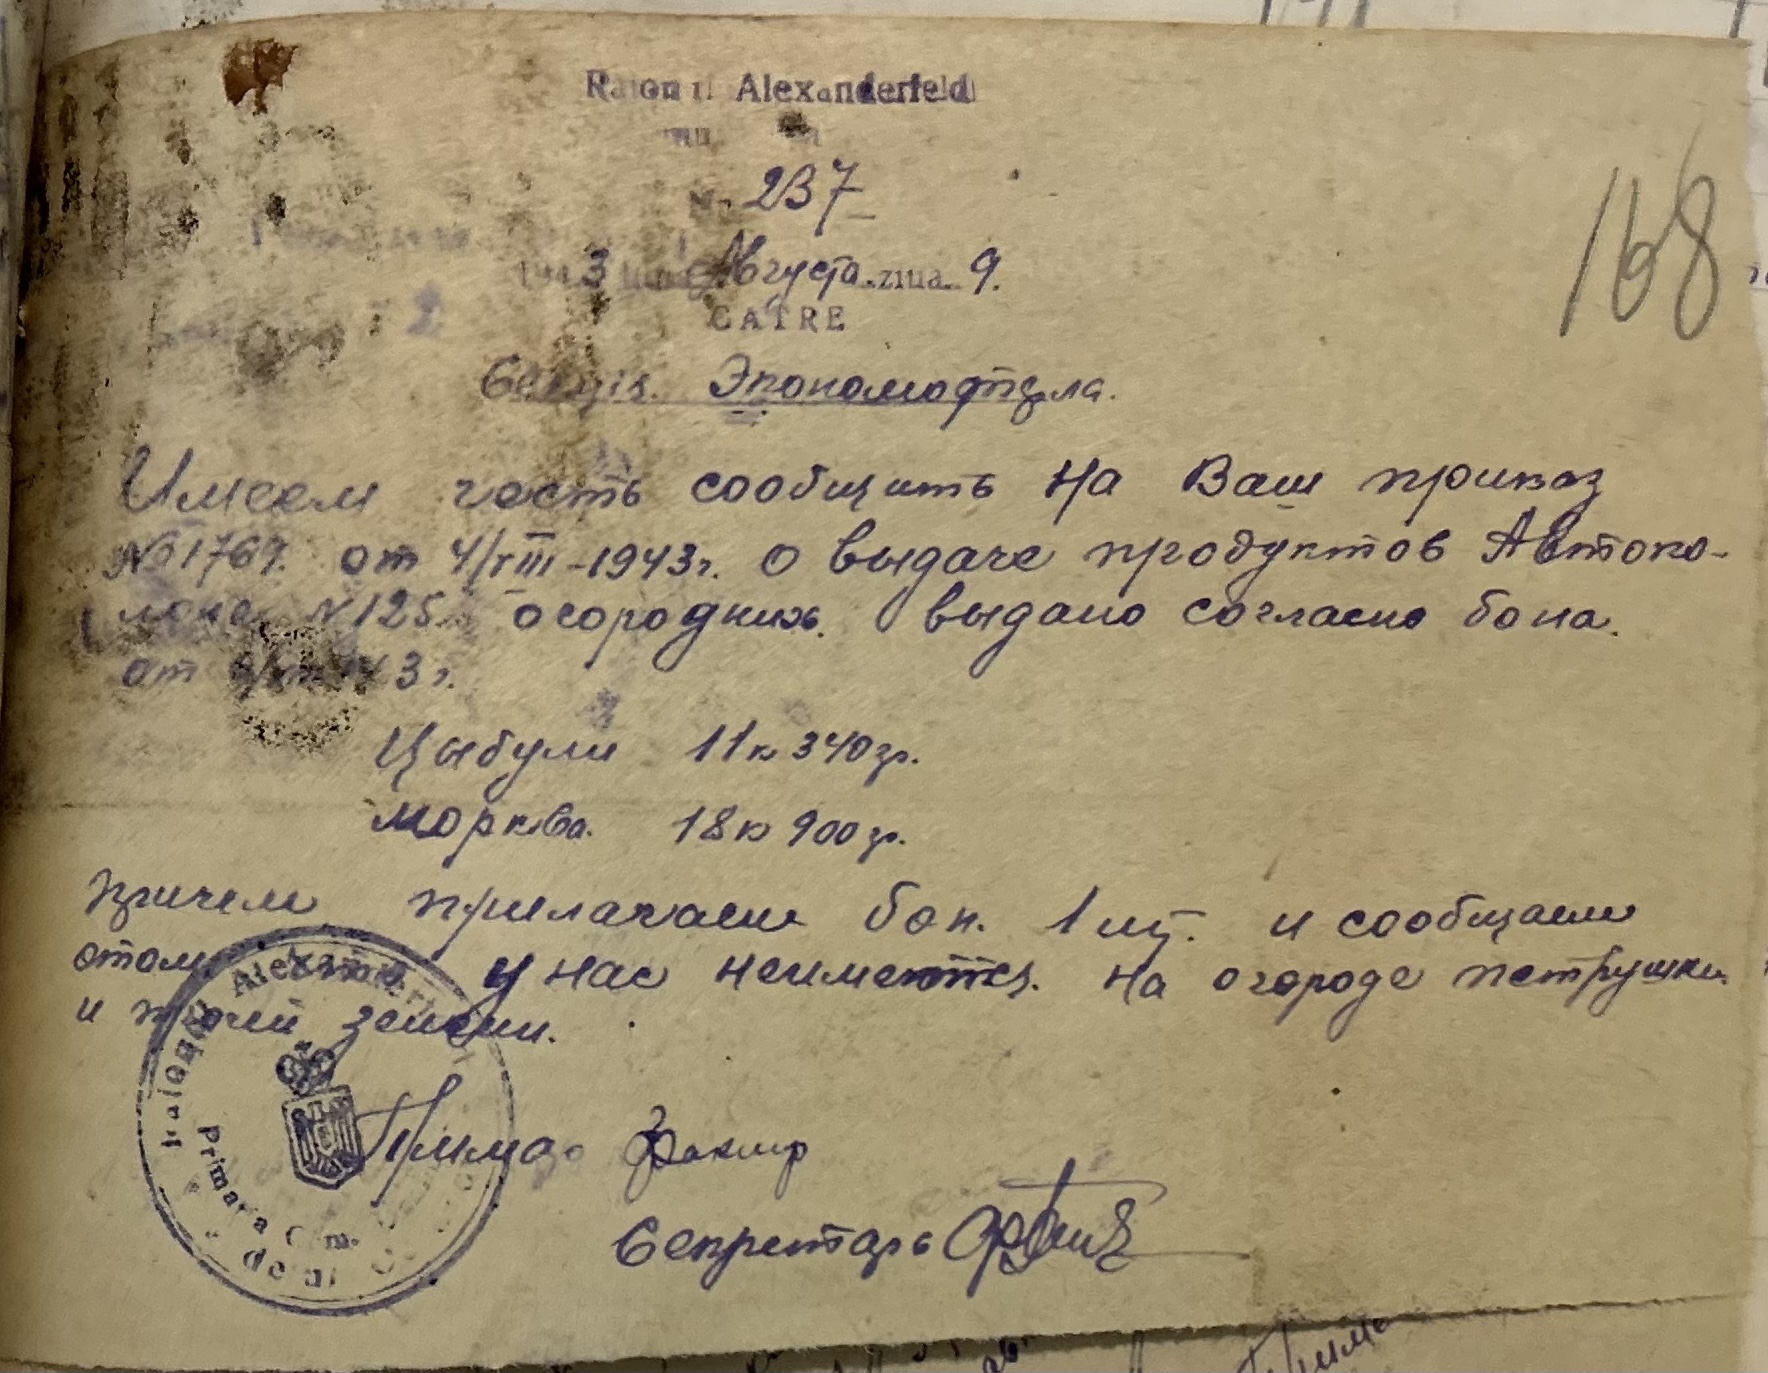 Raionul Alexanderfeld
168
No 237
1943 luna Августа ziua 9.
CĂTRE
Экономотдела.
Имеем честь сообщить на Ваш приказ
№1769. от 4/VIII-1943г. о выдаче продуктов Автоко-
лоне N125 осородних. выдано согласно бона.
от 43г.
Цыбули 11к 340гр.
морква. 18к 900гр.
причем прилагаем бон. 1шт. и сообщаем
отом у нас неимеется. на огороде петрушки
и прочей зелени.
Raionul Alexanderf
Primaria Com.
Примар
Секретарь